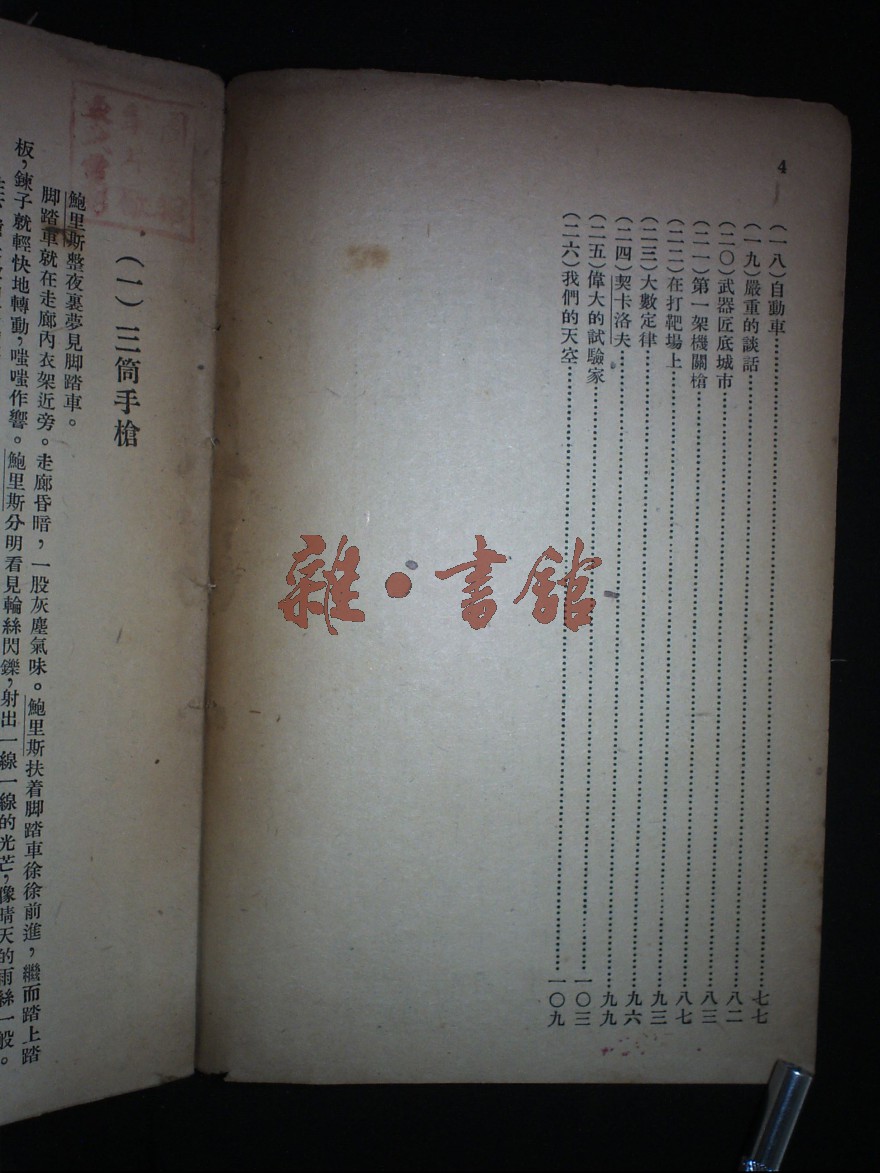 4
(一八)自動車……七七
(一九)嚴重的談話……八二
(二〇)武器匠底城市……八三
(二一)第一架機關槍……八七
(二二)在打靶場上……九三
(二三)大數定律……九六
(二四)契卡洛夫……九九
(二五)偉大的試驗家……一〇三
(二六)我們的天空……一〇九
(一)三筒手槍
鮑里斯整夜裏夢見脚踏車。
脚踏車就在走廊內衣架近旁。走廊昏暗,一股灰塵氣味。鮑里斯扶着脚踏車徐徐前進,繼而踏上踏
板,鍊子就輕快地轉動,嗤嗤作響。鮑里斯分明看見輪絲閃鑠,射出一線一線的光芒,像晴天的雨絲一般。
雜·書館